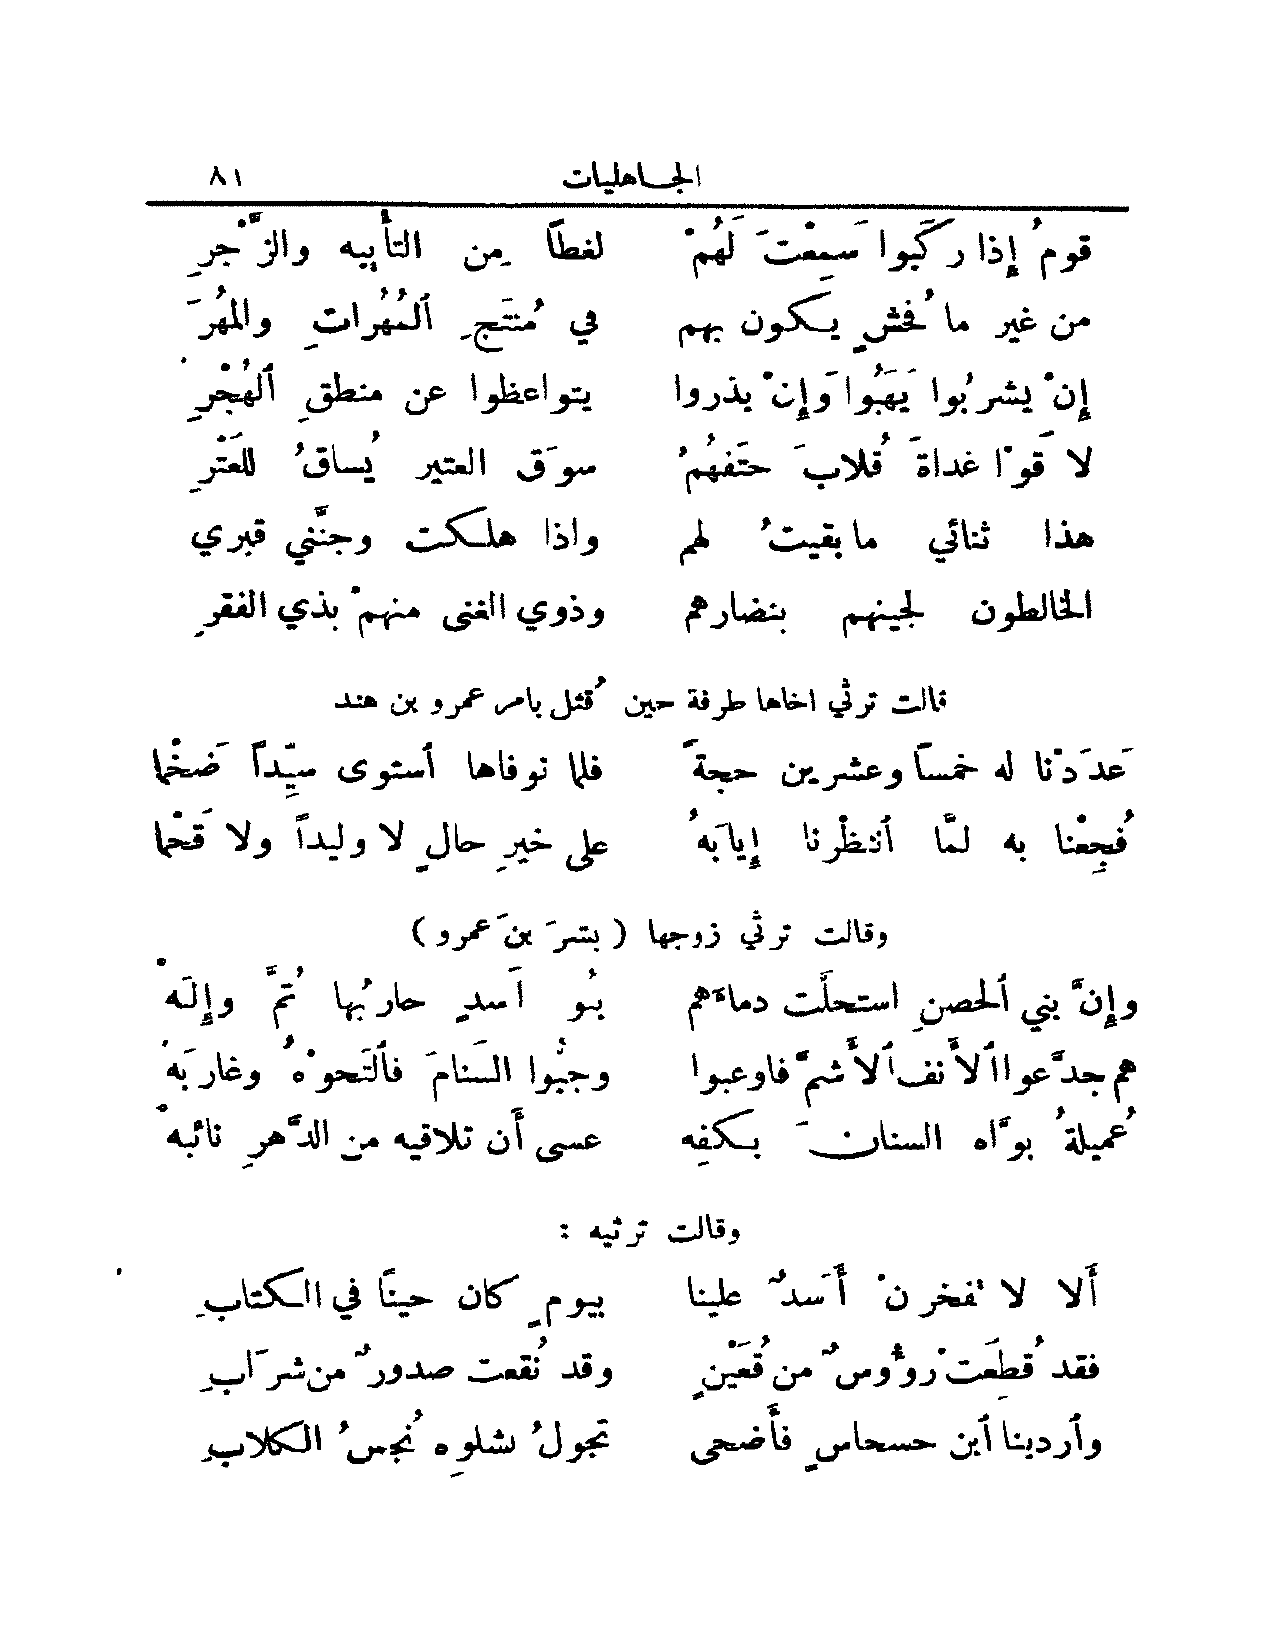 الجاهليات ٨١
قومُ إِذا ركَبوا سَمِعْتَ لَهُمْ لغطاً مِن التأييه والزَّجْرِ
من غير ما فُحْشٍ يكون بهم في مُنتَجِ ٱلمُهُراتِ والمُهْرَ
إِنْ يشربُوا يَهَبُوا وَإِنْ يذروا يتواعظوا عن منطقِ ٱلهُجْرِ
لا قَوْا غداةَ قُلابَ حتَفهُمُ سوَق العتير يُساقُ للعَتْرِ
هذا ثنائي ما بقيتُ لهم واذا هلكت وجنَّني قبري
الخالطون لجينهم بنضارهم وذوي الغنى منهمْ بذي الفقرِ
قالت ترثي اخاها طرفة حين قُتل بامر عمرو بن هند
عَدَدْنا له خمساً وعشرين حجةَ فلما توفاها أستوى سيِّداً ضَخْما
فُجِعْنا به لمَّا ٱنتظْرنا إِيابَهُ على خيرِ حالٍ لا وليداً ولا قَحْما
وقالت ترثي زوجها ( بشرَ بنَ عمرو )
وإِنَّ بني ٱلحصنِ استحلَّت دماءَهم بنُو أَسدٍ حاربُها ثُمَّ وإِلَهْ
هم جدَّعوا ٱلأَنف ٱلأَشمَّ فاوعبوا وجبُّوا السَنامَ فألتَحوْهُ وغاربَهْ
عُميلةُ بوَّاه السنانَ بكفِه عسى أَن تلاقيه من الدَّهرِ نائبهْ
وقالت ترثيه :
أَلا لا تفخرنْ أَسدٌ علينا بيومٍ كان حينًا في الكتابِ
فقد قُطِعَتْ رؤوسٌ من قُعَيْنٍ وقد نُقعت صدورٌ من شرَابِ
وأردينا أبن حسحاسٍ فأَضحى تجولُ بشلوِه نُجسُ الكلابِ